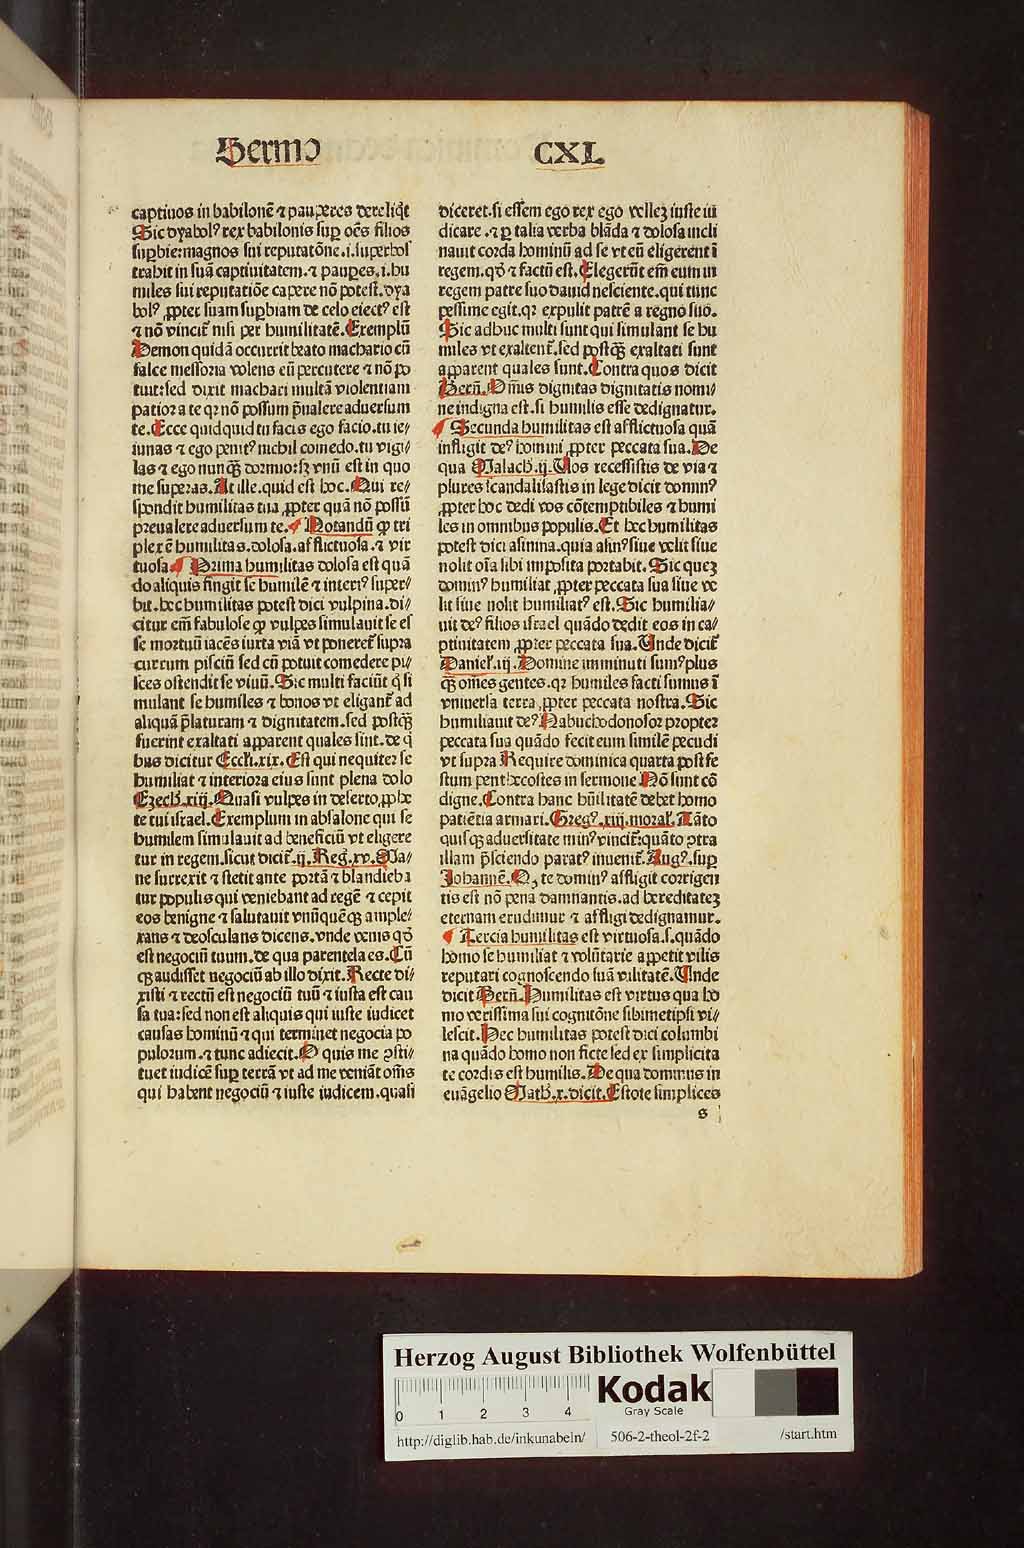 Sermo
CXL
captiuos in babilonē ⁊ pauperes dereliqͭt
Sic dyabolꝰ rex babilonis suꝑ oēs filios
suꝑbie: magnos sui reputatōne .i. superbos
trahit in suā captiuitatem. ⁊ pauꝑes .i. hu
miles sui reputatiōe capere nō potest. dya
bolꝰ ꝓpter suam suꝑbiam de celo eiectꝰ est
⁊ nō vincit̄ nisi per humilitatē. Exemplū
Demon quidā occurrit beato machario cū
falce messoria volens eū percutere ⁊ nō po
tuit: sed dixit machari multā violentiam
patior a te qꝛ nō possum p̄ualere aduersum
te. Ecce quidquid tu facis ego facio. tu ie/
iunas ⁊ ego penitꝰ nichil comedo. tu vigi/
las ⁊ ego nunqꝫ dormio: sꝫ vnū est in quo
me superas. At ille. quid est hoc. Qui re/
spondit humilitas tua ꝓpter quā nō possū
preualere aduersum te. Notandū ꝙ tri
plex ē humilitas. dolosa. afflictuosa. ⁊ vir
tuosa Prima humilitas dolosa est quā
do aliquis fingit se humilē ⁊ interiꝰ super/
bit. hec humilitas potest dici vulpina. di/
citur em̄ fabulose ꝙ vulpes simulauit se es
se mortuū iacēs iuxta viā vt poneret̄ supra
currum pisciū sed cū potuit comedere pi/
sces ostendit se viuū. Sic multi faciūt q̇ si
mulant se humiles ⁊ bonos vt eligant̄ ad
aliquā p̄laturam ⁊ dignitatem. sed postqꝫ
fuerint exaltati apparent quales sint. de q̇
bus dicitur Eccli. xix. Est qui nequiter se
humiliat ⁊ interiora eius sunt plena dolo
Ezech. xiij. Quasi vulpes in deserto ꝓphe
te tui israel. Exemplum in absalone qui se
humilem simulauit ad beneficiū vt eligere
tur in regem. sicut dicit̄ .ij. Reg. xv. Ma/
ne surrexit ⁊ stetit ante portā ⁊ blandieba
tur populis qui veniebant ad regē ⁊ cepit
eos benigne ⁊ salutauit vnūquēqꝫ ample/
xans ⁊ deosculans dicens. vnde venis qd̄
est negociū tuum. de qua parentela es. Cū
qꝫ audisset negociū ab illo dixit. Recte di/
xisti ⁊ rectū est negociū tuū ⁊ iusta est cau
sa tua: sed non est aliquis qui iuste iudicet
causas hominū ⁊ qui terminet negocia po
pulorum. ⁊ tunc adiecit. O quis me ꝯsti/
tuet iudicē suꝑ terrā vt ad me veniāt om̄s
qui habent negociū ⁊ iuste iudicem. quasi
diceret. si essem ego rex ego vellez iuste iu
dicare. ⁊ ꝑ talia verba blāda ⁊ dolosa incli
nauit corda hominū ad se vt eū eligerent ī
regem. qd̄ ⁊ factū est. Elegerūt em̄ eum in
regem patre suo dauid nesciente. qui tunc
pessime egit. qꝛ expulit patrē a regno suo.
Sic adhuc multi sunt qui simulant se hu
miles vt exaltent̄. sed postqꝫ exaltati sunt
apparent quales sunt. Contra quos dicit
Bern̄. Om̄is dignitas dignitatis nomi/
ne indigna est. si humilis esse dedignatur.
Secunda humilitas est afflictuosa quā
infligit deꝰ homini ꝓpter peccata sua. De
qua Malach. ij. Uos recessistis de via ⁊
plures scandalisastis in lege dicit dominꝰ
ꝓpter hoc dedi vos cōtemptibiles ⁊ humi
les in omnibus populis. Et hec humilitas
potest dici asinina. quia asinꝰ siue velit siue
nolit oīa sibi imposita portabit. Sic quez
dominꝰ humiliat ꝓpter peccata sua siue ve
lit siue nolit humiliatꝰ est. Sic humilia/
uit deꝰ filios israel quādo dedit eos in ca/
ptiuitatem ꝓpter peccata sua. Unde dicit̄
Daniel. iij. Domine imminuti sumꝰ plus
qꝫ om̄es gentes. qꝛ humiles facti sumus ī
vniuersa terra ꝓpter peccata nostra. Sic
humiliauit deꝰ Nabuchodonosor propter
peccata sua quādo fecit eum similē pecudi
vt supra Require dominica quarta post fe
stum penthecostes in sermone. Nō sunt cō
digne. Contra hanc hūilitatē debet homo
patiētia armari. Gregꝰ. xiij. moral. Tāto
quisqꝫ aduersitate minꝰ vincit̄: quāto ꝯtra
illam p̄sciendo paratꝰ inuenit̄. Augꝰ. suꝑ
Johannē. Qꝫ te dominꝰ affligit corrigen
tis est nō pena damnantis. ad hereditatez
eternam erudimur ⁊ affligi dedignamur.
Tercia humilitas est virtuosa .s. quādo
homo se humiliat ⁊ volūtarie appetit vilis
reputari cognoscendo suā vilitatē. Unde
dicit Bern̄. Humilitas est virtus qua ho
mo verissima sui cognitōne sibimetipsi vi/
lescit. Hec humilitas potest dici columbi
na quādo homo non ficte sed ex simplicita
te cordis est humilis. De qua dominus in
euāgelio Math. x. dicit. Estote simplices
s
Herzog August Bibliothek Wolfenbüttel
0 1 2 3 4
Kodak
Gray Scale
http://diglib.hab.de/inkunabeln/
506-2-theol-2f-2
/start.htm